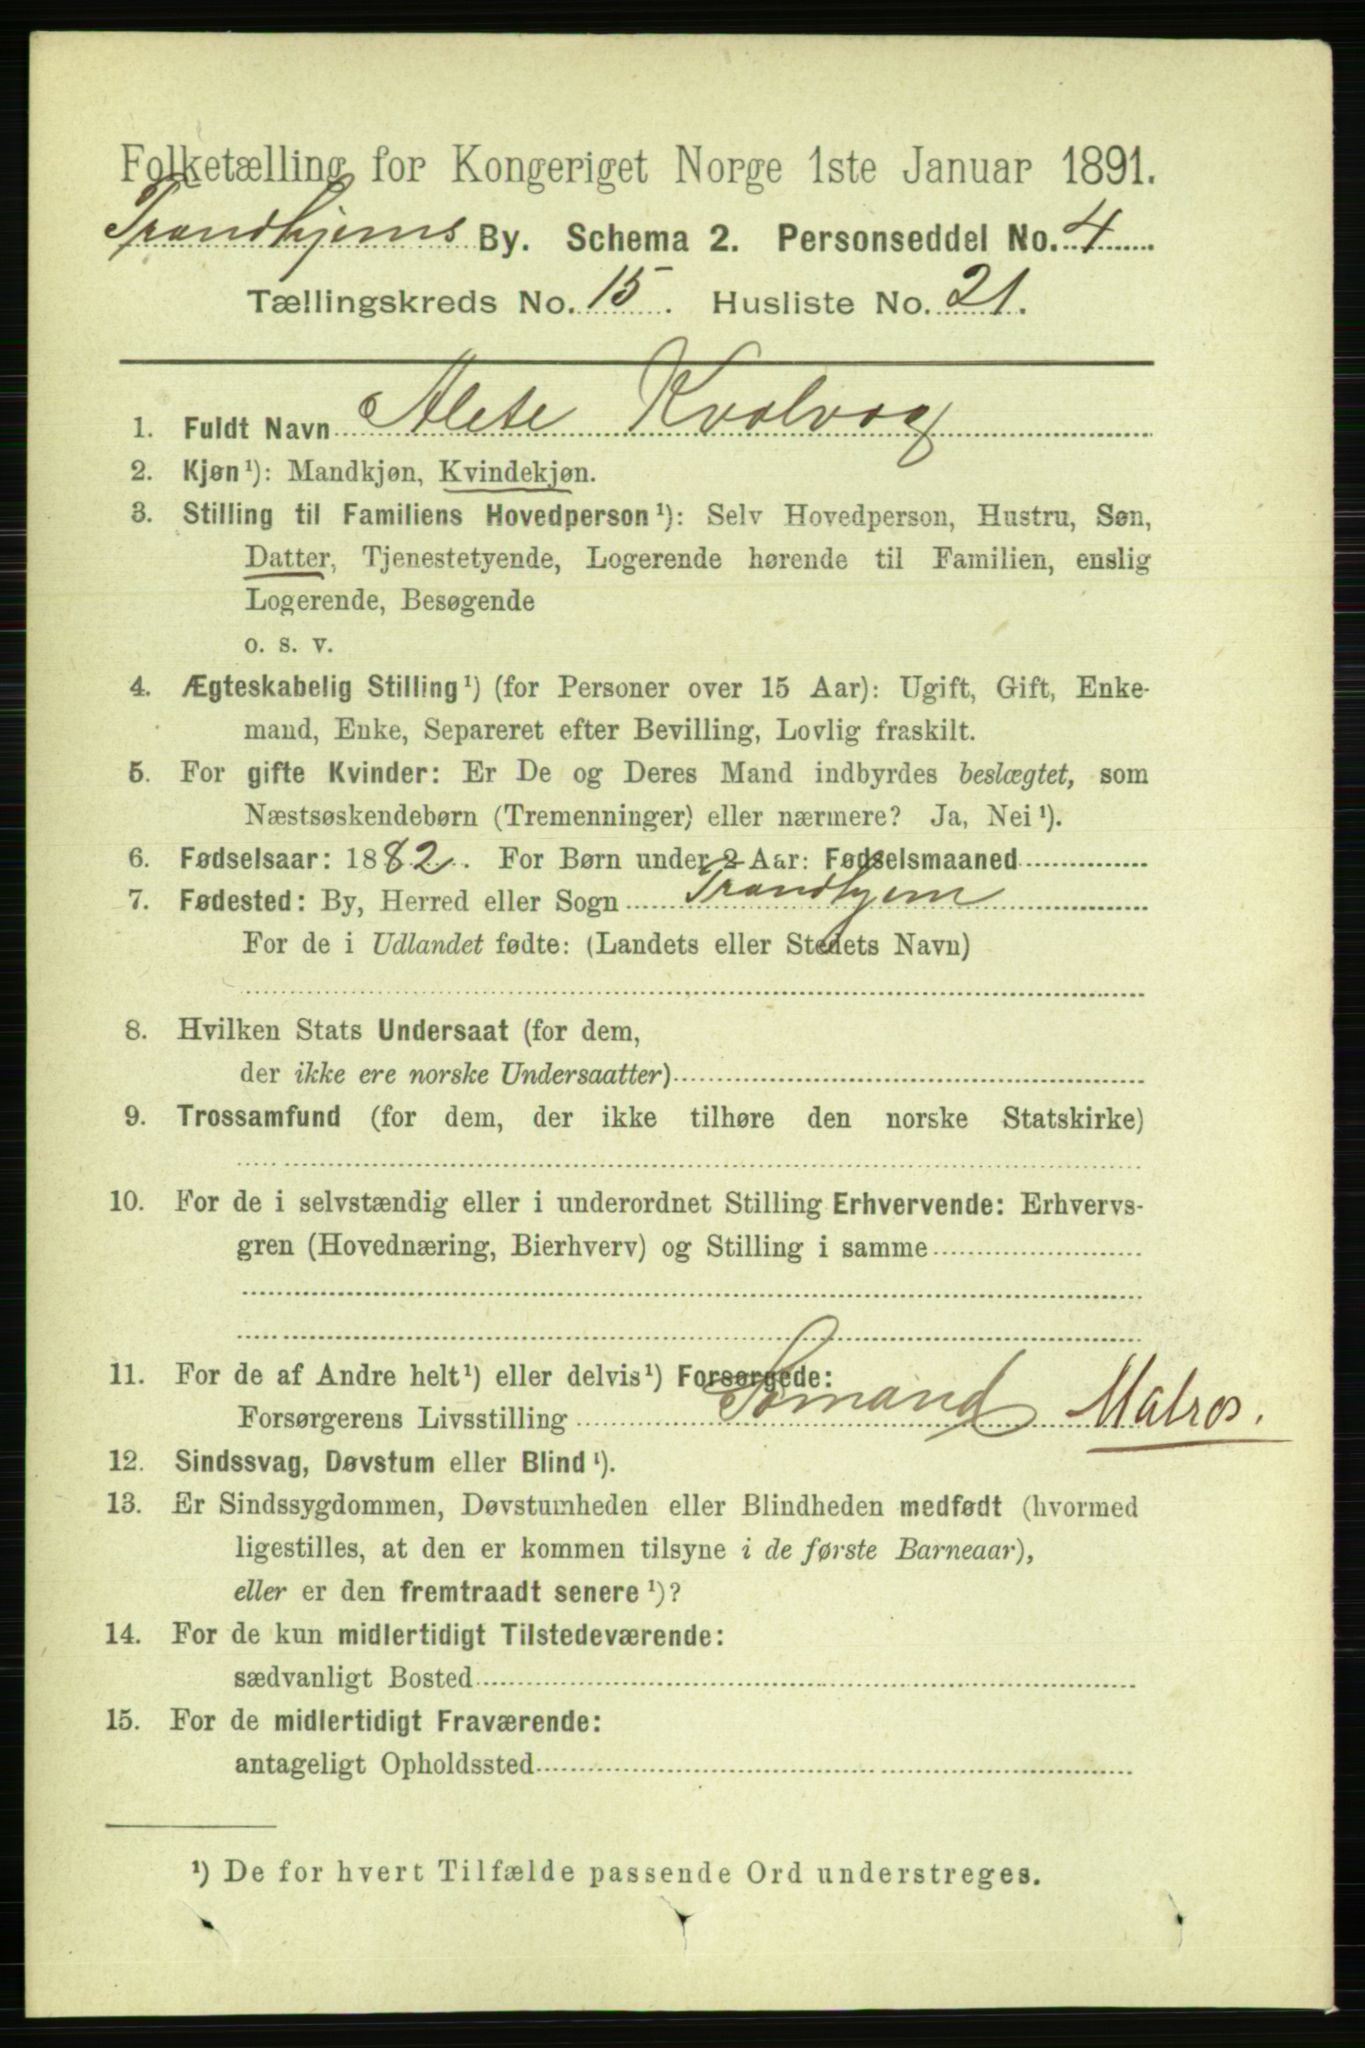 Folketælling for Kongeriget Norge 1ste Januar 1891.
Trondhjems By. Schema 2. Personseddel No. 4
Tællingskreds No. 15. Husliste No. 21.
1. Fuldt Navn Alete Kvalvag
2. Kjøn¹): Mandkjøn, Kvindekjøn.
3. Stilling til Familiens Hovedperson¹): Selv Hovedperson, Hustru, Søn,
Datter, Tjenestetyende, Logerende hørende til Familien, enslig
Logerende, Besøgende
o. s. v.
4. Ægteskabelig Stilling¹) (for Personer over 15 Aar): Ugift, Gift, Enke-
mand, Enke, Separeret efter Bevilling, Lovlig fraskilt.
5. For gifte Kvinder: Er De og Deres Mand indbyrdes beslægtet, som
Næstsøskendebørn (Tremenninger) eller nærmere? Ja, Nei¹).
6. Fødselsaar: 1882. For Børn under 2 Aar: Fødselsmaaned
7. Fødested: By, Herred eller Sogn Trondhjem
For de i Udlandet fødte: (Landets eller Stedets Navn)
8. Hvilken Stats Undersaat (for dem,
der ikke ere norske Undersaatter)
9. Trossamfund (for dem, der ikke tilhøre den norske Statskirke)
10. For de i selvstændig eller i underordnet Stilling Erhvervende: Erhvervs-
gren (Hovednæring, Bierhverv) og Stilling i samme
11. For de af Andre helt¹) eller delvis¹) Forsørgede:
Forsørgerens Livsstilling Sømand Matros.
12. Sindssvag, Døvstum eller Blind¹).
13. Er Sindssygdommen, Døvstumheden eller Blindheden medfødt (hvormed
ligestilles, at den er kommen tilsyne i de første Barneaar),
eller er den fremtraadt senere¹)?
14. For de kun midlertidigt Tilstedeværende:
sædvanligt Bosted
15. For de midlertidigt Fraværende:
antageligt Opholdssted
¹) De for hvert Tilfælde passende Ord understreges.